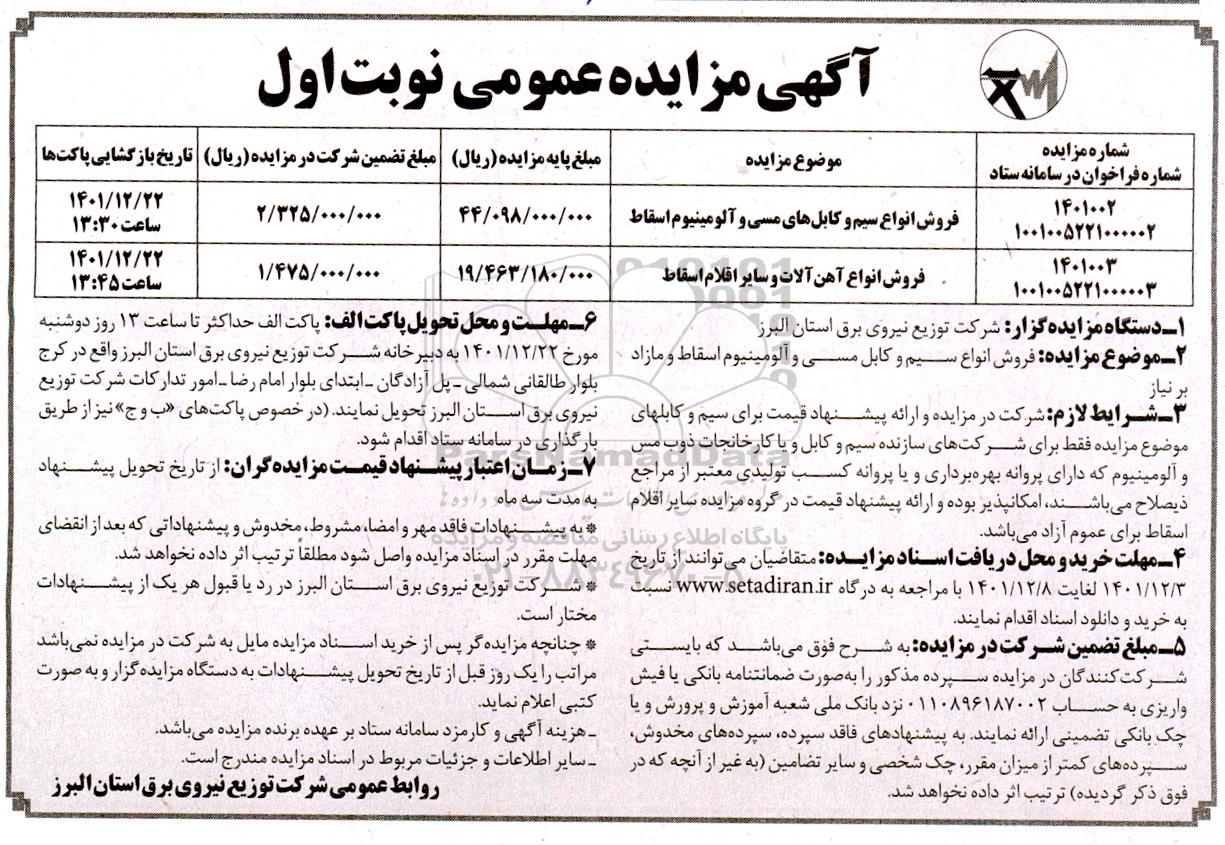 آگهی مزایده عمومی نوبت اول
شماره مزایده
شماره فراخوان در سامانه ستاد
موضوع مزایده
مبلغ پایه مزایده (ریال)
مبلغ تضمین شرکت در مزایده (ریال)
تاریخ بازگشایی پاکت‌ها
۱۴۰۱۰۰۲
۱۰۰۱۰۰۵۲۲۱۰۰۰۰۰۲
فروش انواع سیم و کابل‌های مسی و آلومینیوم اسقاط
۴۴/۰۹۸/۰۰۰/۰۰۰
۲/۳۲۵/۰۰۰/۰۰۰
۱۴۰۱/۱۲/۲۲
ساعت ۱۳:۳۰
۱۴۰۱۰۰۳
۱۰۰۱۰۰۵۲۲۱۰۰۰۰۰۳
فروش انواع آهن آلات و سایر اقلام اسقاط
۱۹/۴۶۳/۱۸۰/۰۰۰
۱/۴۷۵/۰۰۰/۰۰۰
۱۴۰۱/۱۲/۲۲
ساعت ۱۳:۴۵
۱ـ دستگاه مزایده گزار: شرکت توزیع نیروی برق استان البرز
۲ـ موضوع مزایده: فروش انواع سیم و کابل مسی و آلومینیوم اسقاط و مازاد
بر نیاز
۳ـ شرایط لازم: شرکت در مزایده و ارائه پیشنهاد قیمت برای سیم و کابلهای
موضوع مزایده فقط برای شرکت‌های سازنده سیم و کابل و یا کارخانجات ذوب مس
و آلومینیوم که دارای پروانه بهره‌برداری و یا پروانه کسب تولیدی معتبر از مراجع
ذیصلاح می‌باشند، امکانپذیر بوده و ارائه پیشنهاد قیمت در گروه مزایده سایر اقلام
اسقاط برای عموم آزاد می‌باشد.
۴ـ مهلت خرید و محل دریافت اسناد مزایده: متقاضیان می‌توانند از تاریخ
۱۴۰۱/۱۲/۳ لغایت ۱۴۰۱/۱۲/۸ با مراجعه به درگاه www.setadiran.ir نسبت
به خرید و دانلود اسناد اقدام نمایند.
۵ـ مبلغ تضمین شرکت در مزایده: به شرح فوق می‌باشد که بایستی
شرکت‌کنندگان در مزایده سپرده مذکور را به‌صورت ضمانتنامه بانکی یا فیش
واریزی به حساب ۰۱۱۰۸۹۶۱۸۷۰۰۲ نزد بانک ملی شعبه آموزش و پرورش و یا
چک بانکی تضمینی ارائه نمایند. به پیشنهادهای فاقد سپرده، سپرده‌های مخدوش،
سپرده‌های کمتر از میزان مقرر، چک شخصی و سایر تضامین (به غیر از آنچه که در
فوق ذکر گردیده) ترتیب اثر داده نخواهد شد.
۶ـ مهلت و محل تحویل پاکت الف: پاکت الف حداکثر تا ساعت ۱۳ روز دوشنبه
مورخ ۱۴۰۱/۱۲/۲۲ به دبیرخانه شرکت توزیع نیروی برق استان البرز واقع در کرج
بلوار طالقانی شمالی ـ پل آزادگان ـ ابتدای بلوار امام رضا ـ امور تدارکات شرکت توزیع
نیروی برق استان البرز تحویل نمایند. (در خصوص پاکت‌های «ب و ج» نیز از طریق
بارگذاری در سامانه ستاد اقدام شود.
۷ـ زمان اعتبار پیشنهاد قیمت مزایده گران: از تاریخ تحویل پیشنهاد
به مدت سه ماه
* به پیشنهادات فاقد مهر و امضا، مشروط، مخدوش و پیشنهاداتی که بعد از انقضای
مهلت مقرر در اسناد مزایده واصل شود مطلقاً ترتیب اثر داده نخواهد شد.
* شرکت توزیع نیروی برق استان البرز در رد یا قبول هر یک از پیشنهادات
مختار است.
* چنانچه مزایده‌گر پس از خرید اسناد مزایده مایل به شرکت در مزایده نمی‌باشد
مراتب را یک روز قبل از تاریخ تحویل پیشنهادات به دستگاه مزایده گزار و به صورت
کتبی اعلام نماید.
ـ هزینه آگهی و کارمزد سامانه ستاد بر عهده برنده مزایده می‌باشد.
ـ سایر اطلاعات و جزئیات مربوط در اسناد مزایده مندرج است.
روابط عمومی شرکت توزیع نیروی برق استان البرز
ParsNamadData
پایگاه اطلاع رسانی مناقصه و مزایده